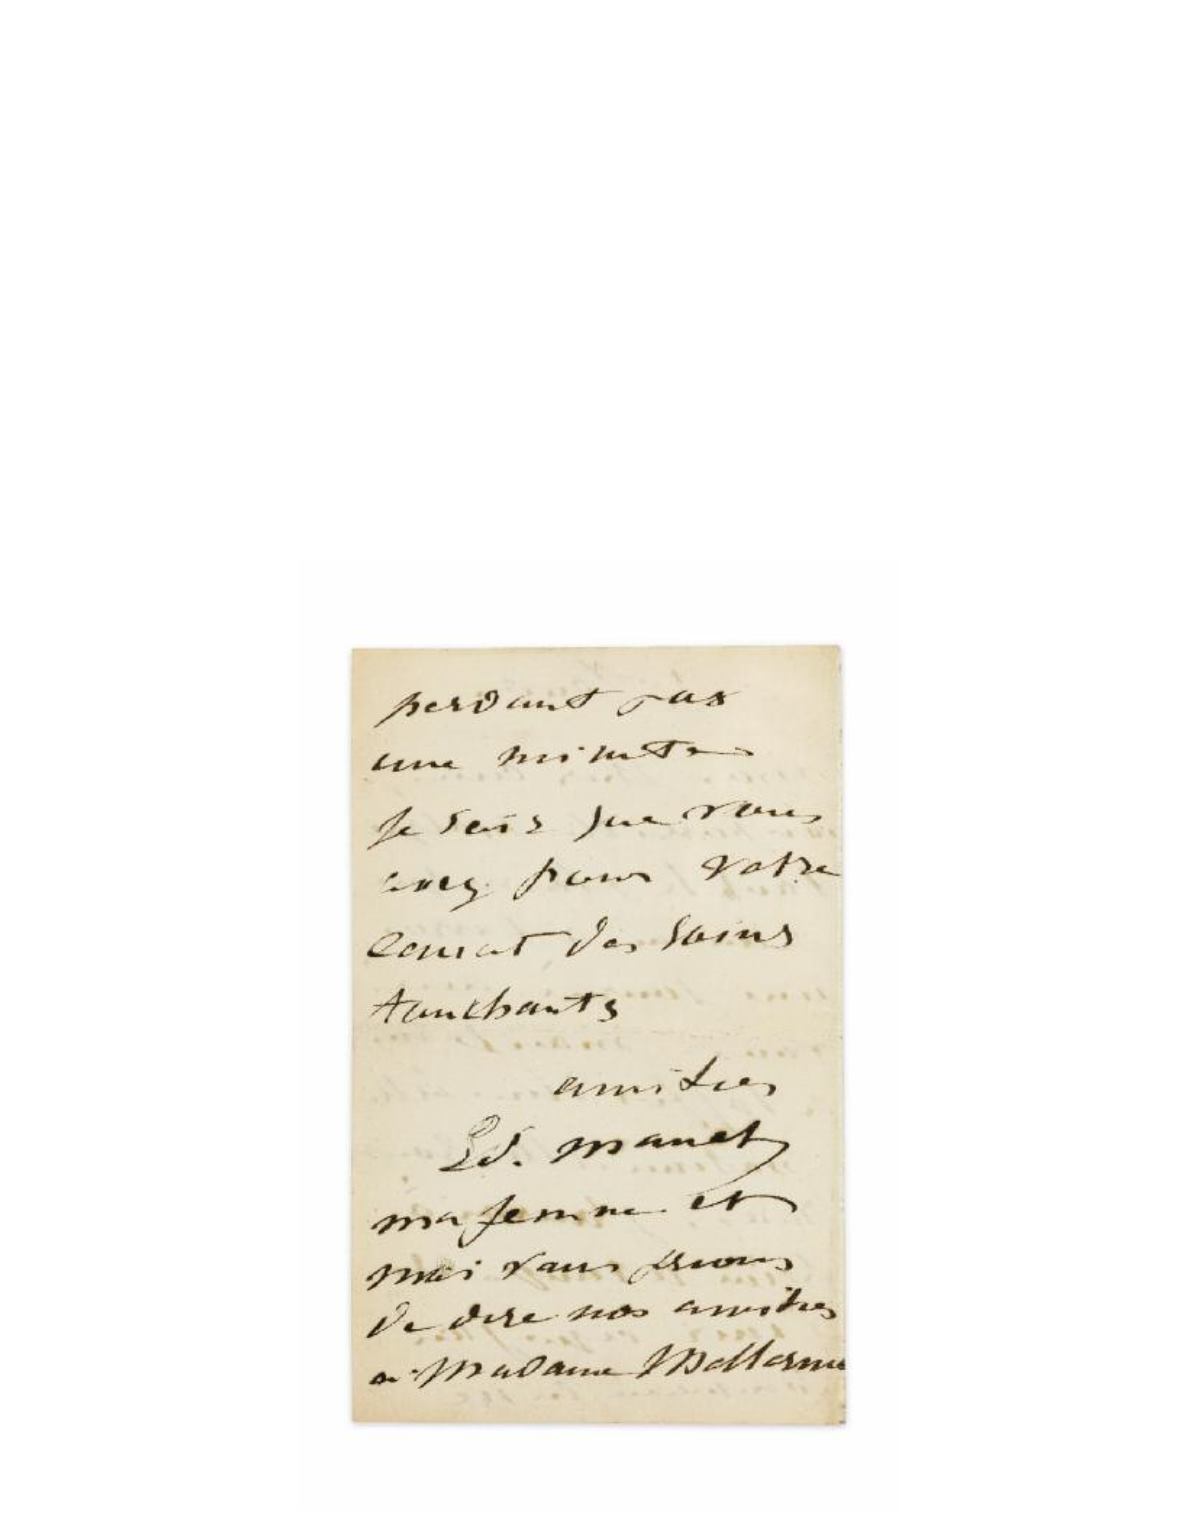 perdant pas
une minute
je sais que vous
avez pour votre
constat des soins
touchants
amitiés
Ed. Manet
ma femme et
moi vous prions
de dire nos amitiés
a Madame Mallarmé